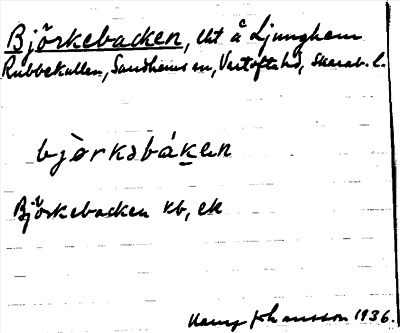 Björkebacken, lht å Ljunghem
Rubbekullen, Sandhems sn, Vartofta hd, Skarab. l.
björksbáken
Björkebacken kb, ek
Harry Johansson 1936.